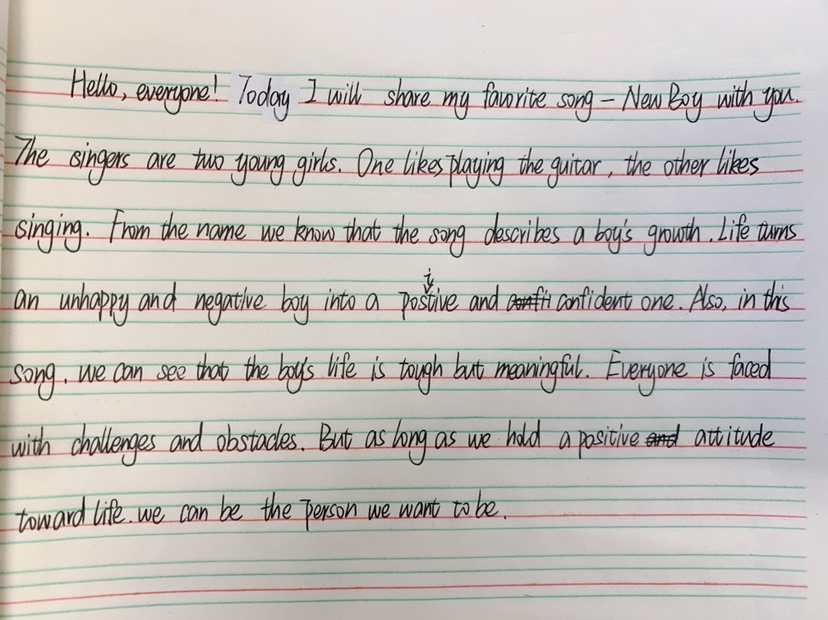 Hello, everyone! Today I will share my favorite song - New Boy with you.
The singers are two young girls. One likes playing the guitar, the other likes
singing. From the name we know that the song describes a boy's growth. Life turns
an unhappy and negative boy into a positive and confident one. Also, in this
song, we can see that the boy's life is tough but meaningful. Everyone is faced
with challenges and obstacles. But as long as we hold a positive attitude
toward life, we can be the person we want to be.